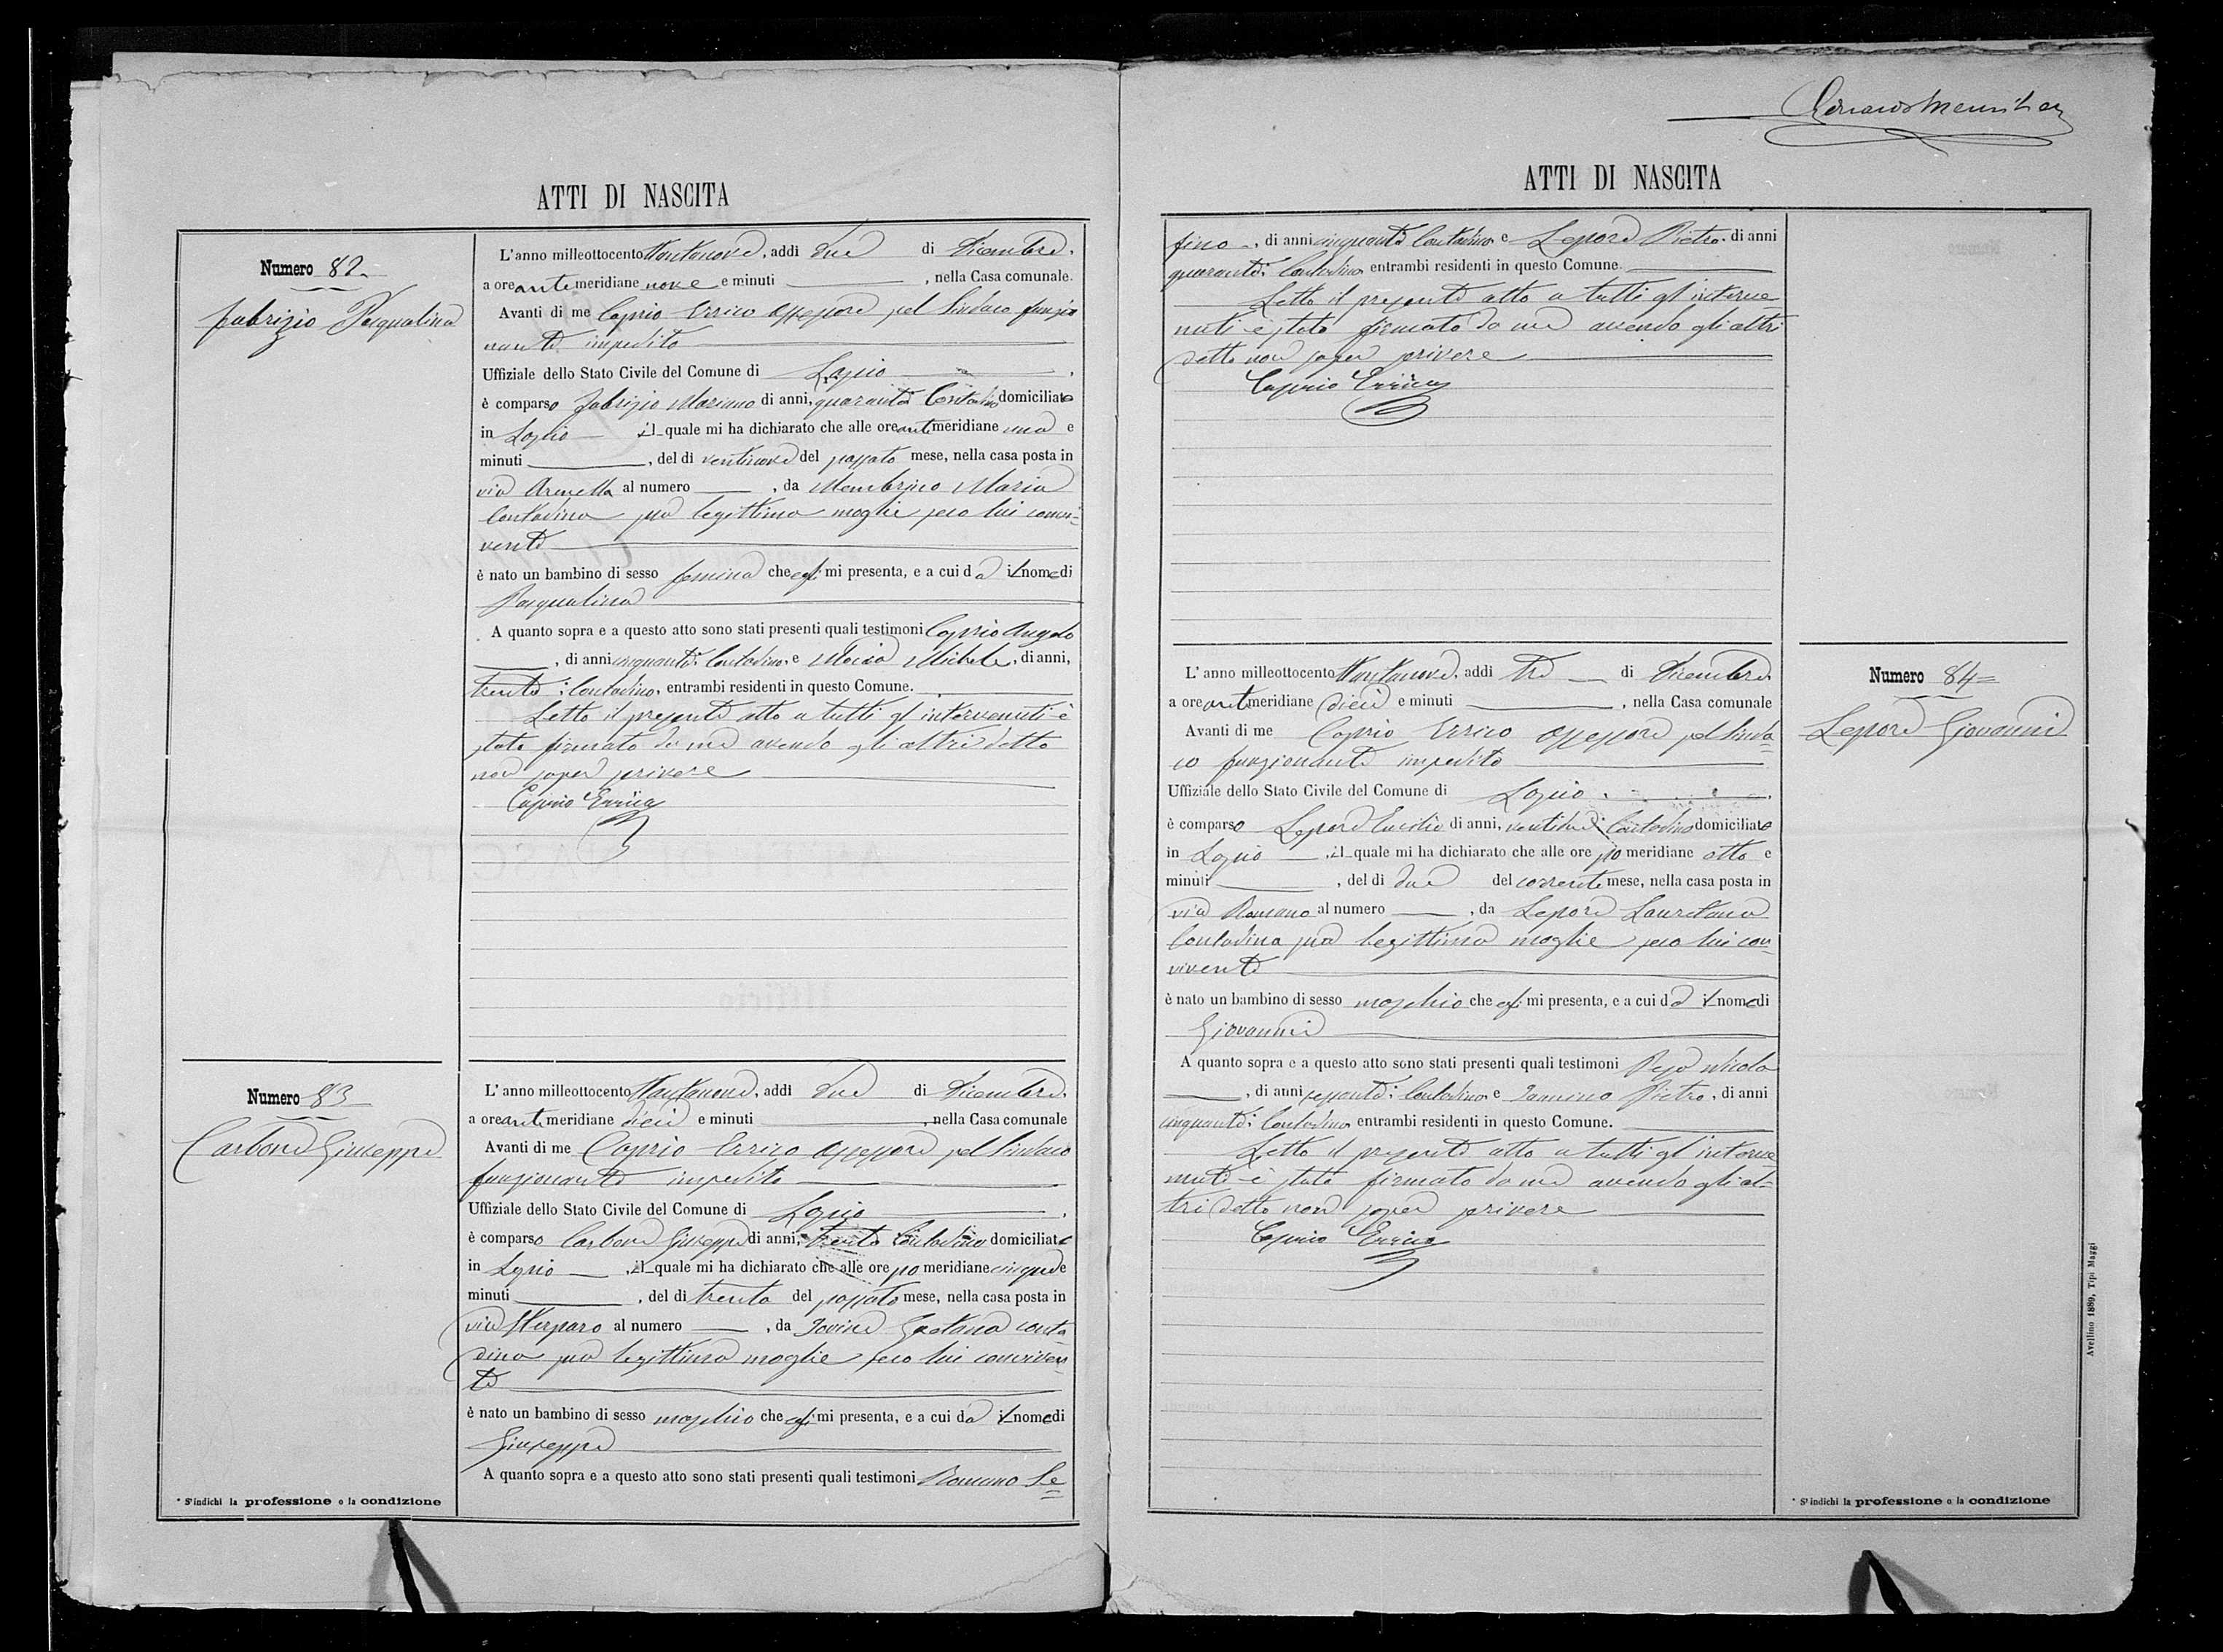 ATTI DI NASCITA
Numero 82.
Fabrizio Pasqualina
L'anno milleottocento Ottantanove, addi due di Dicembre,
a ore antimeridiane nove e minuti , nella Casa comunale.
Avanti di me Caprio Errico Assessore pel Sindaco funzio
nante impedito
Uffiziale dello Stato Civile del Comune di Lapio
è comparso Fabrizio Mariano di anni, quaranta Contadino domiciliato
in Lapio il quale mi ha dichiarato che alle ore antimeridiane una e
minuti , del dì ventinove del passato mese, nella casa posta in
via Arenella al numero , da Membrino Maria
Contadina sua legittima moglie seco lui convi-
vente
è nato un bambino di sesso femina che egli mi presenta, e a cui dà il nome di
Pasqualina
A quanto sopra e a questo atto sono stati presenti quali testimoni Caprio Angelo
, di anni cinquanta: Contadino, e Michele, di anni,
trenta: Contadino, entrambi residenti in questo Comune.
Letto il presente atto a tutti gl'intervenuti è
stato firmato da me avendo gli altri detto
non saper scrivere
Caprio Errico
Numero 83
Carbone Giuseppe
L'anno milleottocento Ottantanove, addi due di Dicembre,
a ore antimeridiane dieci e minuti , nella Casa comunale
Avanti di me Caprio Errico Assessore pel Sindaco
funzionante impedito
Uffiziale dello Stato Civile del Comune di Lapio
è comparso Carbone Giuseppe di anni, trenta Contadino domiciliato
in Lapio , il quale mi ha dichiarato che alle ore pomeridiane cinque e
minuti , del dì trenta del passato mese, nella casa posta in
via Sterparo al numero , da Iovine Gaetana conta
dina sua legittima moglie seco lui conviven
te
è nato un bambino di sesso maschio che egli mi presenta, e a cui dà il nome di
Giuseppe
A quanto sopra e a questo atto sono stati presenti quali testimoni Romano Se=
* S'indichi la professione o la condizione
ATTI DI NASCITA
fino , di anni cinquanta Contadino e Lepore Pietro, di anni
quaranta: Contadino entrambi residenti in questo Comune.
Letto il presente atto a tutti gl'interve
nuti è stato firmato da me avendo gli altri
detto non saper scrivere
Caprio Errico
L'anno milleottocento Ottantanove, addi tre di Dicembre,
a ore antimeridiane dieci e minuti , nella Casa comunale
Avanti di me Caprio Errico Assessore pel Sinda=
co funzionante impedito
Uffiziale dello Stato Civile del Comune di Lapio
è comparso Lepore di anni, ventidue: Contadino domiciliato
in Lapio , il quale mi ha dichiarato che alle ore pomeridiane otto e
minuti , del dì due del corrente mese, nella casa posta in
via Romano al numero , da Lepore Lauretana
Contadina sua legittima moglie seco lui con
vivente
è nato un bambino di sesso maschio che egli mi presenta, e a cui dà il nome di
Giovanni
A quanto sopra e a questo atto sono stati presenti quali testimoni Nicola
, di anni sessanta: Contadino e Iannino Pietro, di anni
cinquanta: Contadino entrambi residenti in questo Comune.
Letto il presente atto a tutti gl'interve
nuti è stato firmato da me avendo gli al-
tri detto non saper scrivere
Caprio Errico
Numero 84=
Lepore Giovanni
* S'indichi la professione o la condizione
Avellino 1889, Tipi Maggi